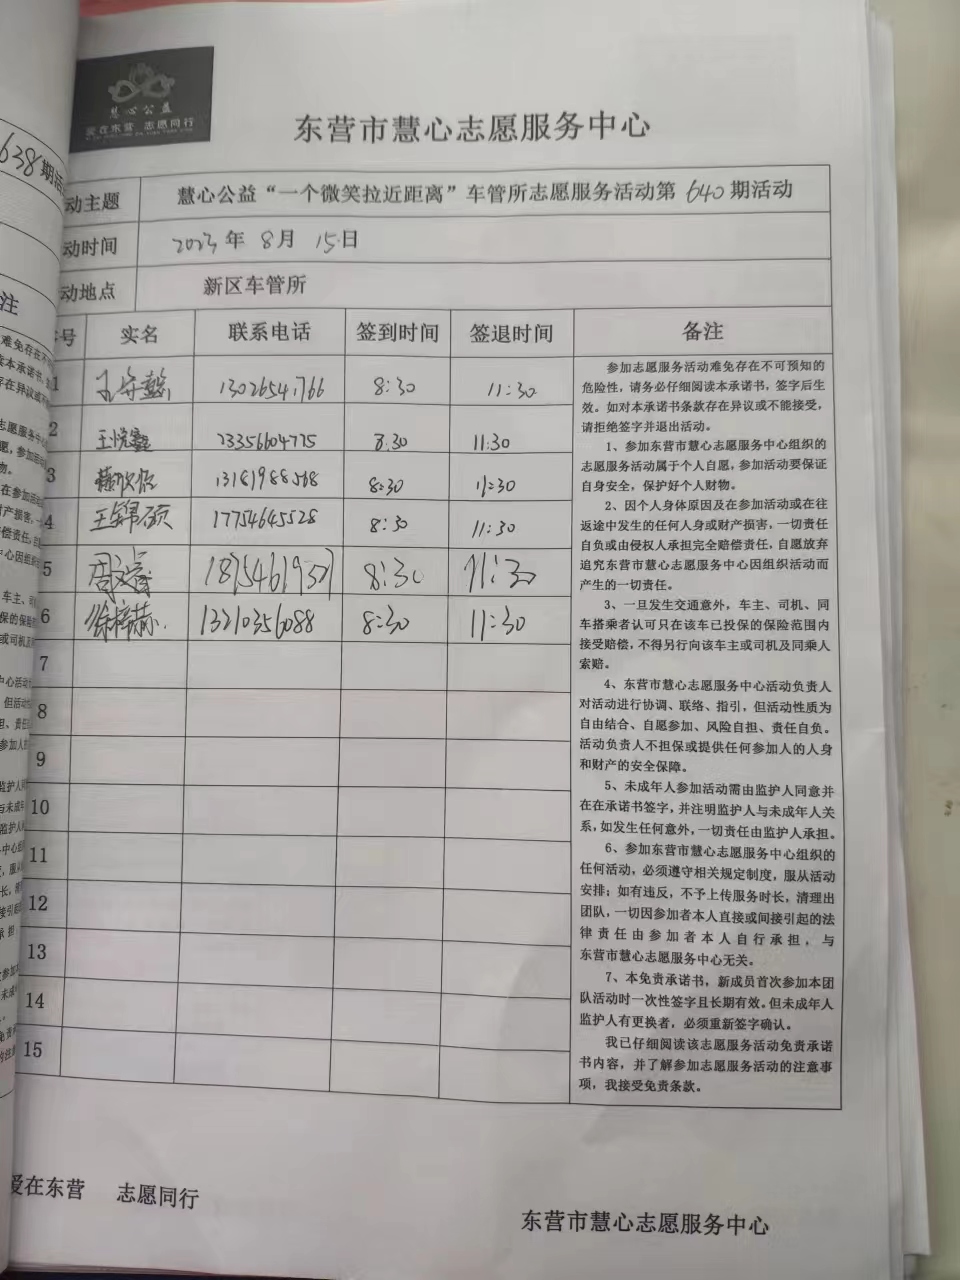 慧心公益
爱在东营 志愿同行
东营市慧心志愿服务中心
638期活
动主题 慧心公益“一个微笑拉近距离”车管所志愿服务活动第640期活动
动时间 2023年8月15日
动地点 新区车管所
号 实名 联系电话 签到时间 签退时间 备注
1 13026541766 8:30 11:30
2 王悦鑫 23356604775 8:30 11:30
3 13181988568 8:30 11:30
4 王锦硕 17754645528 8:30 11:30
5 周文睿 18754619537 8:30 11:30
6 徐梓赫 13210356088 8:30 11:30
7
8
9
10
11
12
13
14
15
参加志愿服务活动难免存在不可预知的
危险性，请务必仔细阅读本承诺书，签字后生
效。如对本承诺书条款存在异议或不能接受，
请拒绝签字并退出活动。
1、参加东营市慧心志愿服务中心组织的
志愿服务活动属于个人自愿，参加活动要保证
自身安全，保护好个人财物。
2、因个人身体原因及在参加活动或在往
返途中发生的任何人身或财产损害，一切责任
自负或由侵权人承担完全赔偿责任，自愿放弃
追究东营市慧心志愿服务中心因组织活动而
产生的一切责任。
3、一旦发生交通意外，车主、司机、同
车搭乘者认可只在该车已投保的保险范围内
接受赔偿，不得另行向该车主或司机及同乘人
索赔。
4、东营市慧心志愿服务中心活动负责人
对活动进行协调、联络、指引，但活动性质为
自由结合、自愿参加、风险自担、责任自负。
活动负责人不担保或提供任何参加人的人身
和财产的安全保障。
5、未成年人参加活动需由监护人同意并
在在承诺书签字，并注明监护人与未成年人关
系，如发生任何意外，一切责任由监护人承担。
6、参加东营市慧心志愿服务中心组织的
任何活动，必须遵守相关规定制度，服从活动
安排；如有违反，不予上传服务时长，清理出
团队，一切因参加者本人直接或间接引起的法
律责任由参加者本人自行承担，与
东营市慧心志愿服务中心无关。
7、本免责承诺书，新成员首次参加本团
队活动时一次性签字且长期有效。但未成年人
监护人有更换者，必须重新签字确认。
我已仔细阅读该志愿服务活动免责承诺
书内容，并了解参加志愿服务活动的注意事
项，我接受免责条款。
爱在东营 志愿同行
东营市慧心志愿服务中心